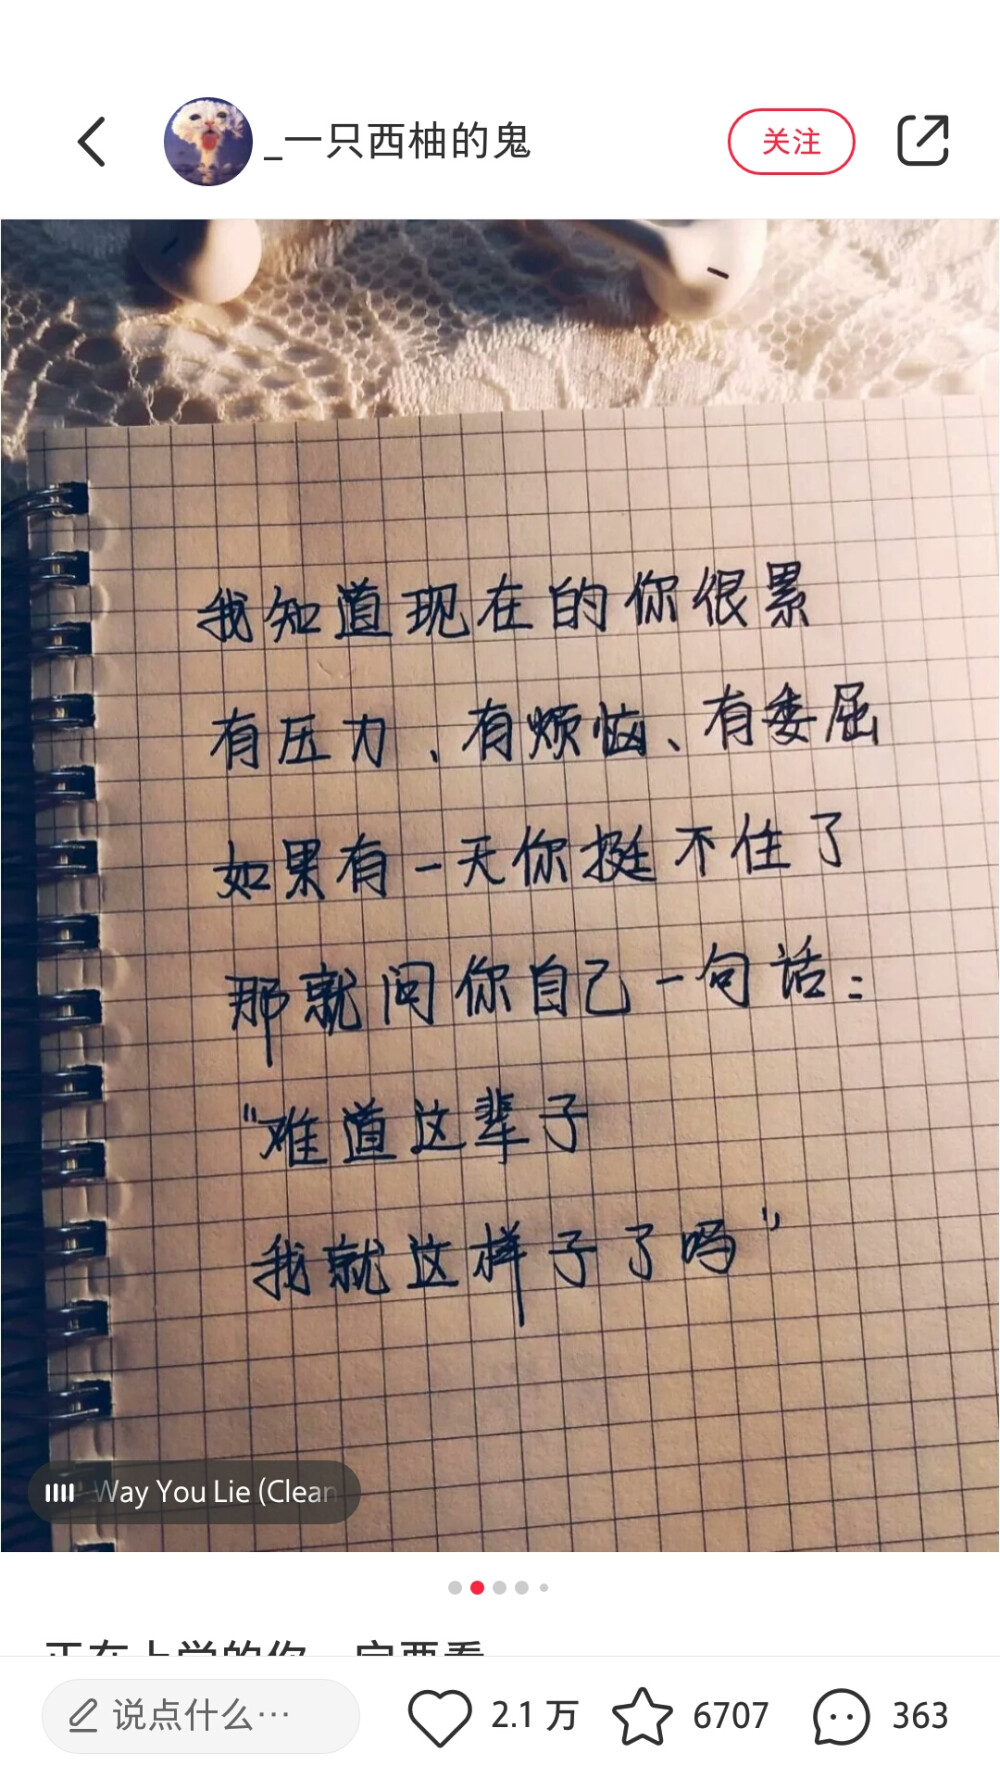 _一只西柚的鬼
关注
我知道现在的你很累
有压力、有烦恼、有委屈
如果有一天你挺不住了
那就问你自己一句话：
“难道这辈子
我就这样子了吗”
Way You Lie (Clean
正在上学的你 一定要看
说点什么…
2.1 万
6707
363